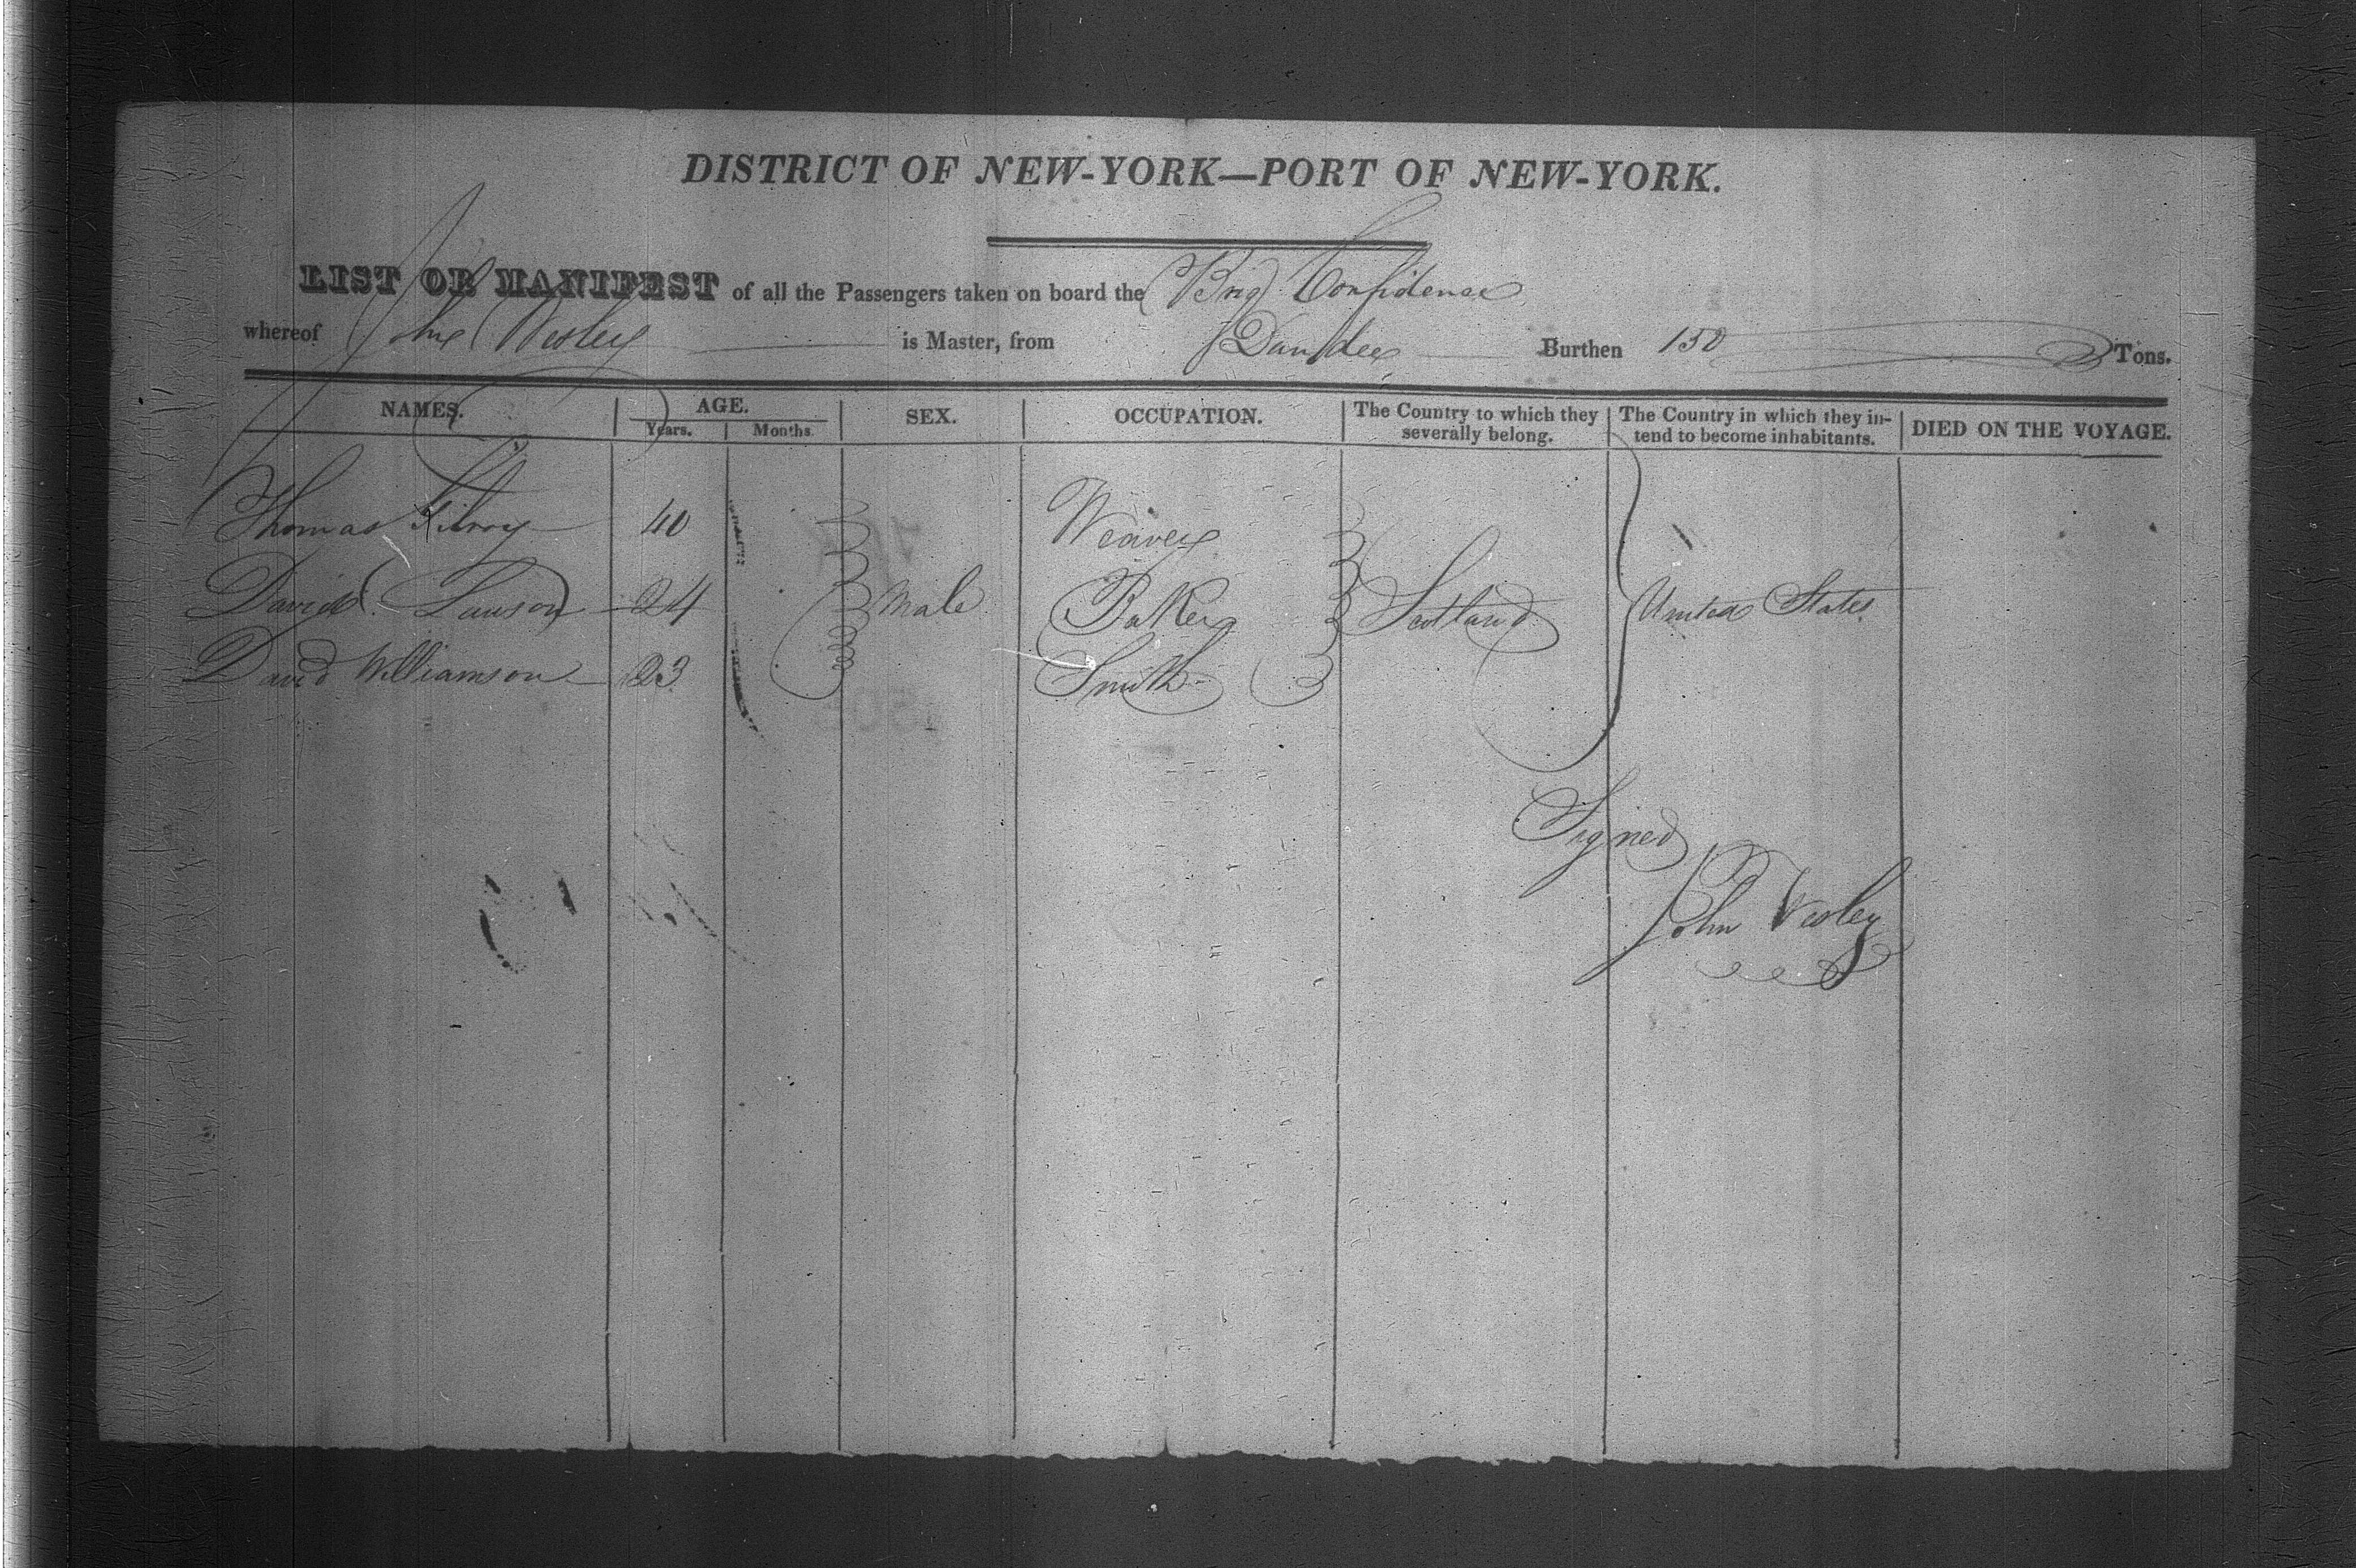 DISTRICT OF NEW-YORK—PORT OF NEW-YORK.
LIST OR MANIFEST of all the Passengers taken on board the Brig Confidence
whereof John Wesley is Master, from Dundee Burthen 150 Tons.
NAMES. AGE. SEX. OCCUPATION. The Country to which they severally belong. The Country in which they in-tend to become inhabitants. DIED ON THE VOYAGE.
Years. Months
Thomas Gilroy 40 Weaver
David Lawson 24 Male Baker Scotland United States
David Williamson 23 Smith
Signed
John Wesley